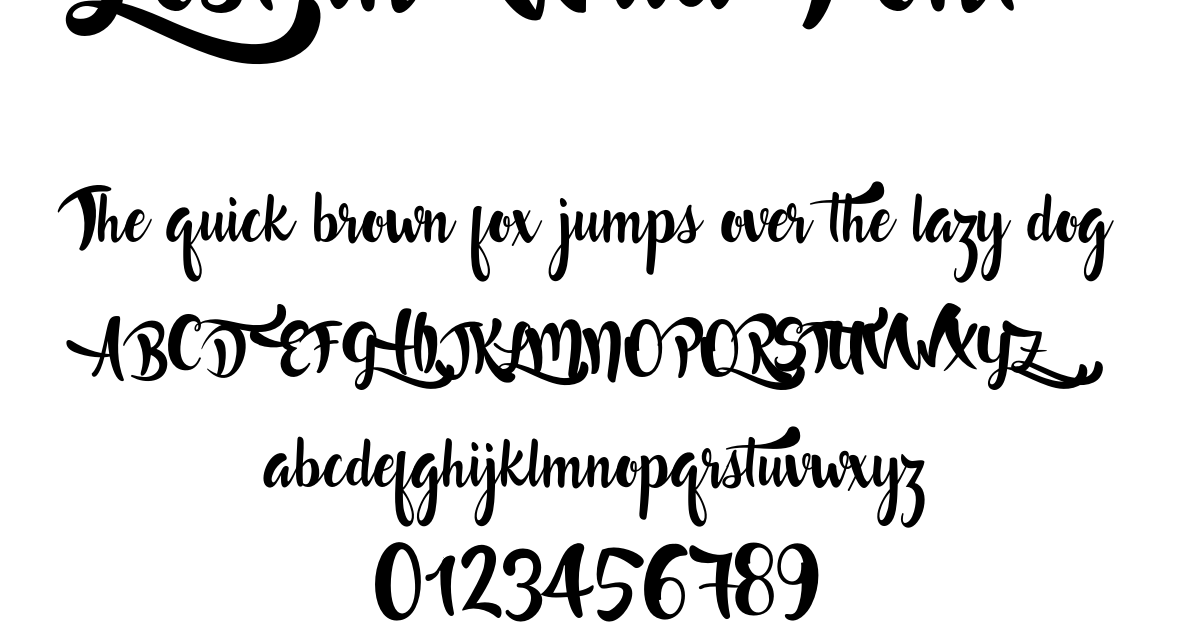 The quick brown fox jumps over the lazy dog
ABCDEFGHIJKLMNOPQRSTUVWXYZ
abcdefghijklmnopqrstuvwxyz
0123456789